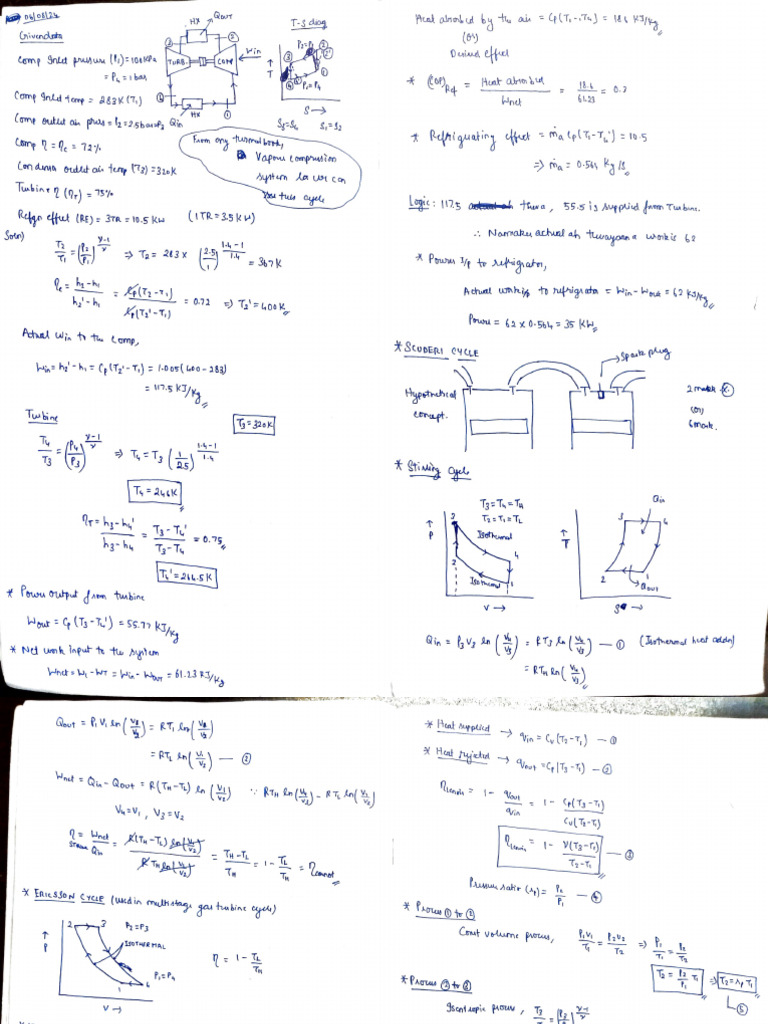 06/08/24
Givendata
Comp Inlet pressure (P₁) = 101 kPa
= P₄ = 1 bar
Comp Inlet temp = 283K (T₁)
Comp outlet air press = P₂ = 2.5 bar = P₃
Comp η = ηc = 72%
outlet air temp (T₃) = 320K
Turbine η (ηT) = 75%
Refgn effect (RE) = 3TR = 10.5 KW (1TR = 3.5 KW)
HX
Qout
③
②
TURB.
COMP
Win
④
①
HX
Qin
T-S diag
P₂=P₃
P₁=P₄
T
S→
S₃=S₄ S₁=S₂
From any thermal book,
Vapour compression
system
Soln)
T₂/T₁ = (P₂/P₁)^(γ-1/γ) ⇒ T₂ = 283 x (2.5/1)^(1.4-1/1.4) = 367K
ηc = h₂-h₁/h₂'-h₁ = Cp(T₂-T₁)/Cp(T₂'-T₁) = 0.72 ⇒ T₂' = 400K
Actual Win to the Comp,
Win = h₂'-h₁ = Cp(T₂'-T₁) = 1.005(400-283)
= 117.5 KJ/kg
Turbine
T₃ = 320K
T₄/T₃ = (P₄/P₃)^(γ-1/γ) ⇒ T₄ = T₃ (1/2.5)^(1.4-1/1.4)
T₄ = 246K
ηT = h₃-h₄'/h₃-h₄ = T₃-T₄'/T₃-T₄ = 0.75
T₄' = 264.5K
* Power output from turbine
Wout = Cp(T₃-T₄') = 55.77 KJ/kg
* Net work input to the system
Wnet = Wc-WT = Win-Wout = 61.23 KJ/kg
Heat absorbed by the air = Cp(T₁-T₄') = 18.6 KJ/kg
(or)
Desired effect
* (COP)Ref = Heat absorbed/Wnet = 18.6/61.23 = 0.3
* Refrigerating effect = ṁa Cp(T₁-T₄') = 10.5
⇒ ṁa = 0.564 Kg/s
Logic: 117.5 theva, 55.5 is supplied from turbine.
∴ Namaku actual ah thevayaana work is 62
* Power I/p to refrigrator,
Actual work to refrigrator = Win-Wout = 62 KJ/kg
Power = 62 x 0.564 = 35 KW
* SCUDERI CYCLE
Spark plug
Hypothetical
concept.
2 mark
(or)
6 mark.
* Stirling Cycle
T₃=T₄=TH
T₂=T₁=TL
Isothermal
Isothermal
P
V →
3
4
2
1
Qin
T
Qout
S →
Qin = P₃V₃ ln(V₄/V₃) = RT₃ ln(V₄/V₃) — ① (Isothermal heat addn)
= RTH ln(V₄/V₃)
Qout = P₁V₁ ln(V₁/V₂) = RT₁ ln(V₁/V₂)
= RTL ln(V₁/V₂) — ②
Wnet = Qin-Qout = R(TH-TL) ln(V₁/V₂) ∵ RTH ln(V₄/V₃) - RTL ln(V₁/V₂)
V₄=V₁, V₃=V₂
η = Wnet/Qin = R(TH-TL) ln(V₁/V₂)/R TH ln(V₁/V₂) = TH-TL/TH = 1-TL/TH = ηcarnot
* ERICSSON CYCLE (used in multistage gas turbine cycle)
2
3
P₂=P₃
ISOTHERMAL
P
P₁=P₄
1
4
V →
η = 1-TL/TH
* Heat supplied → qin = Cv(T₂-T₁) — ①
* Heat rejected → qout = Cp(T₃-T₁) — ②
ηLenoir = 1 - qout/qin = 1 - Cp(T₃-T₁)/Cv(T₂-T₁)
ηLenoir = 1 - γ(T₃-T₁)/T₂-T₁ — ③
Pressure ratio (rp) = P₂/P₁ — ④
* Process ① to ②
Const volume process, P₁V₁/T₁ = P₂V₂/T₂ ⇒ P₁/T₁ = P₂/T₂
T₂ = P₂/P₁ T₁ ⇒ T₂ = rp T₁
⑤
* Process ② to ③
Isentropic process, T₃/T₂ = (P₃/P₂)^(γ-1/γ)